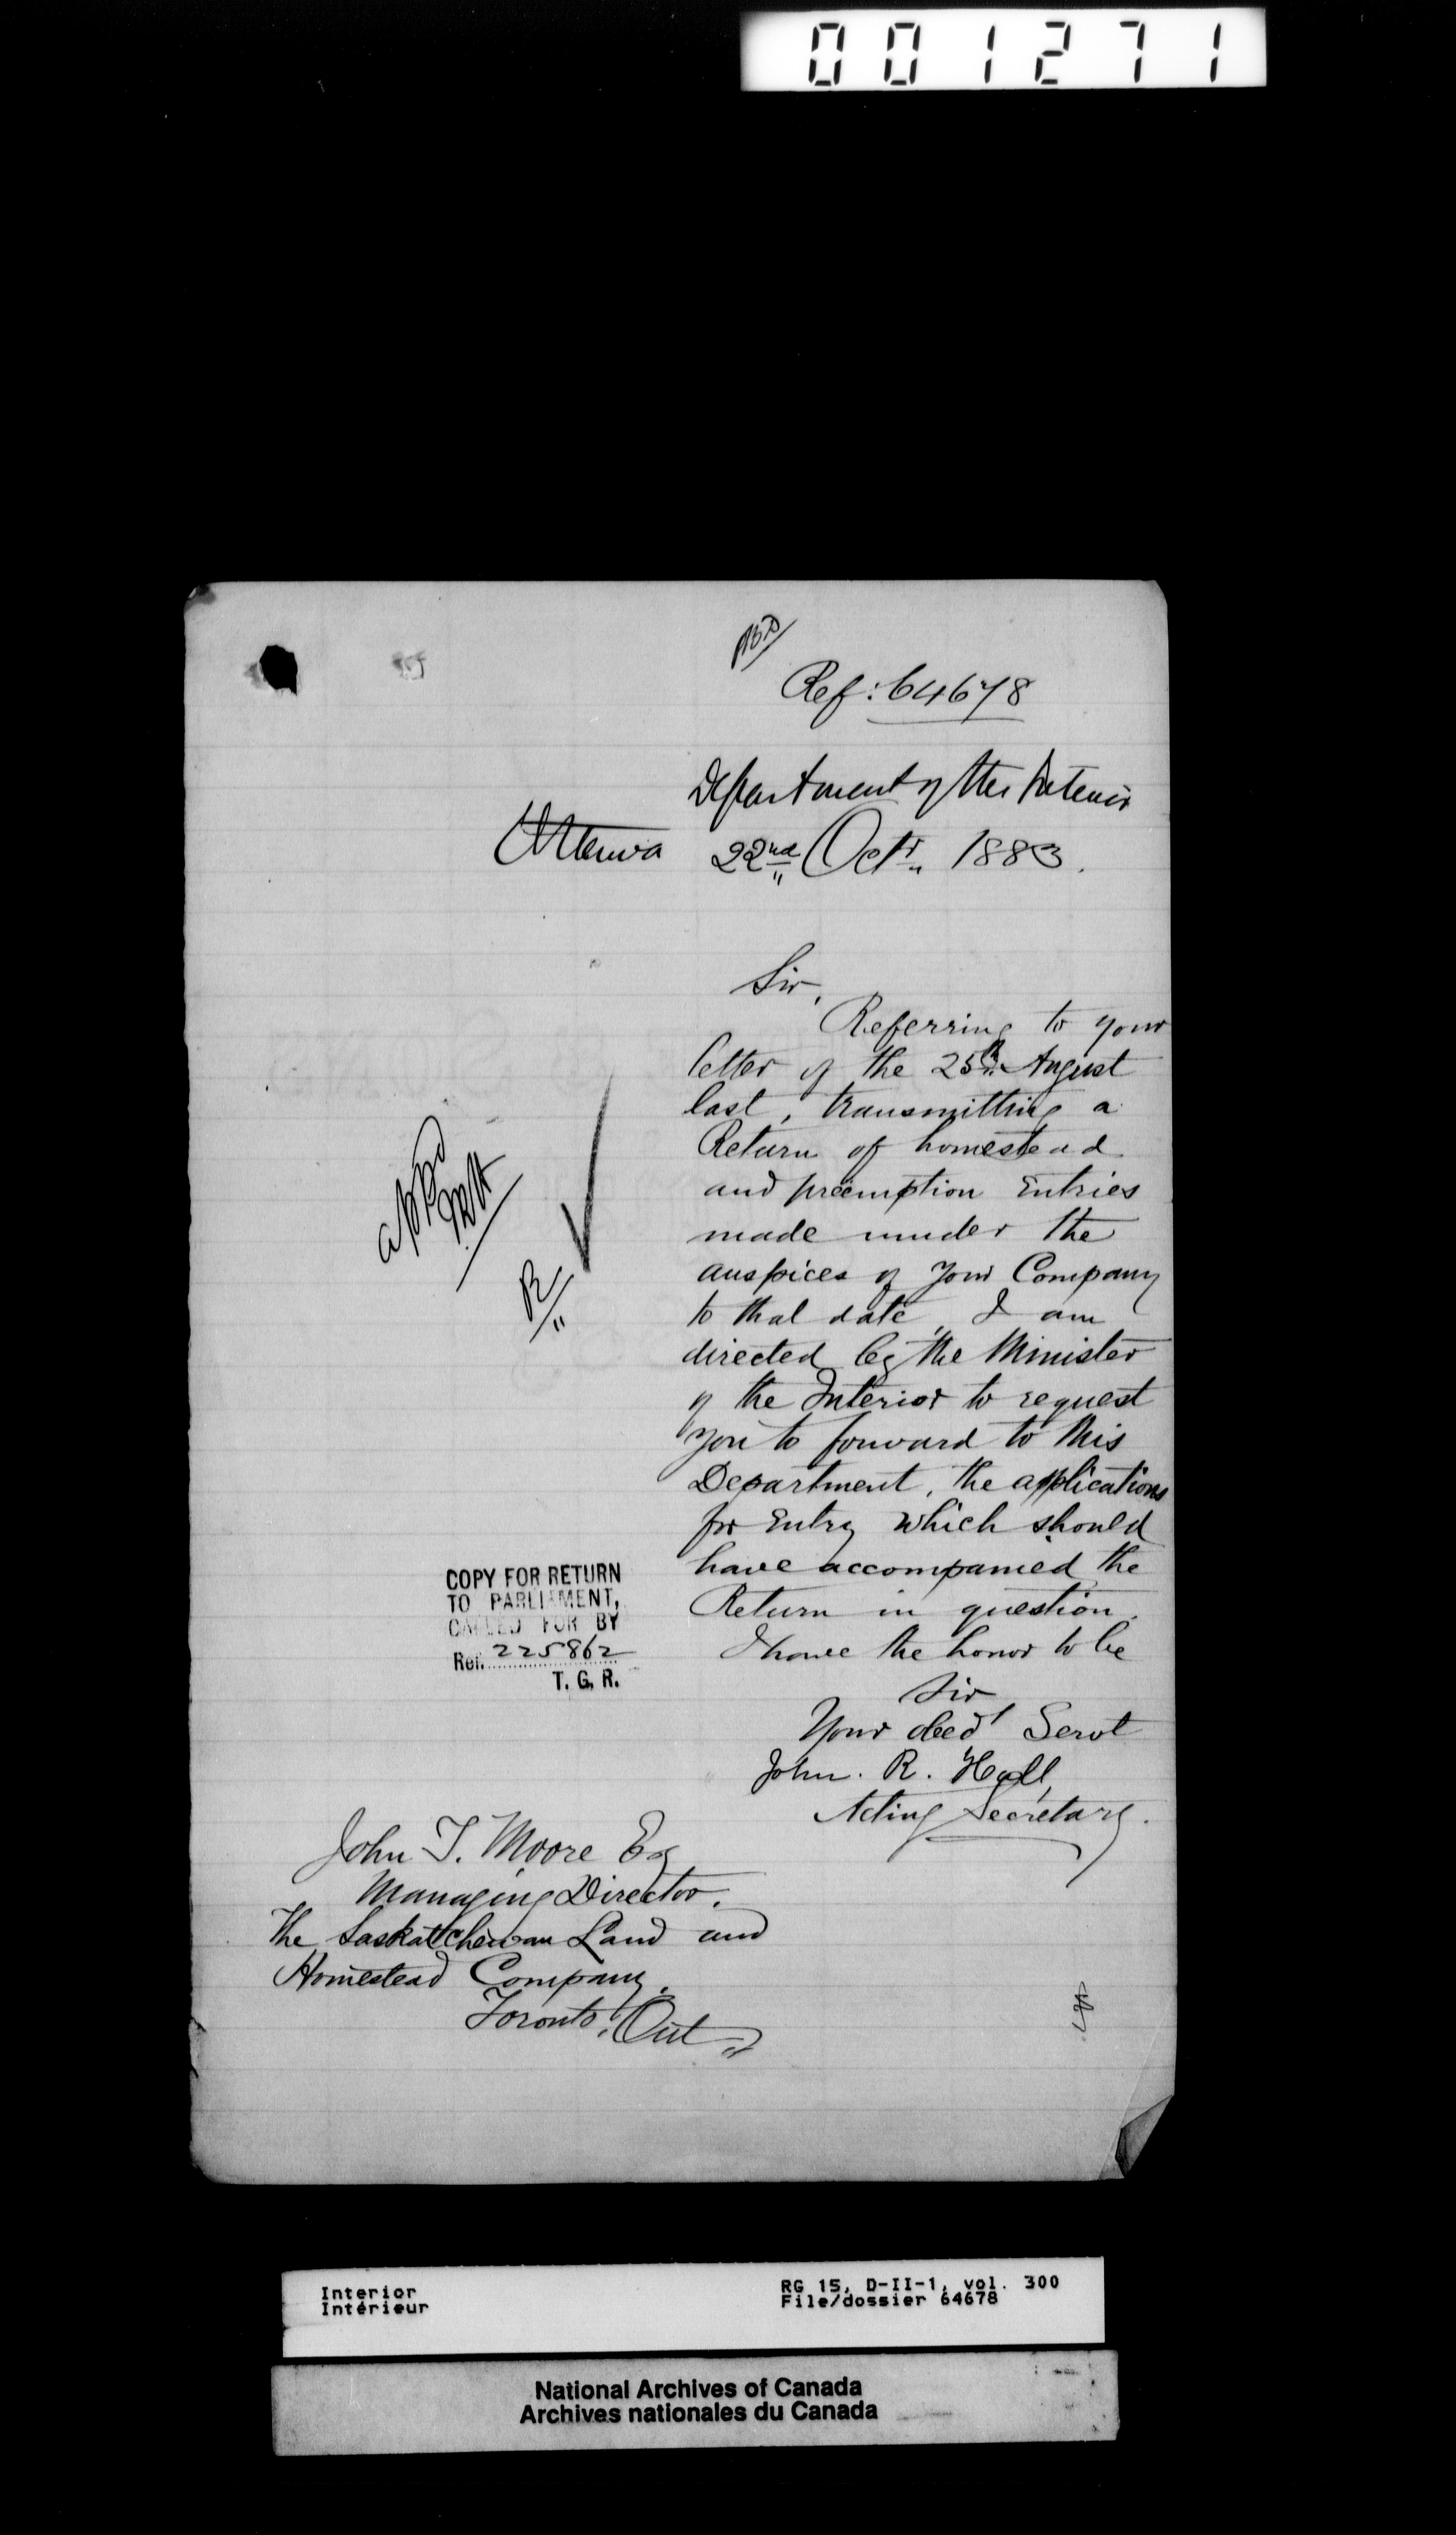 001271
Ref: 64678
Department of the Interior
Ottawa 22nd Octr. 1883.
Sir,
Referring to your
letter of the 25th August
last, transmitting a
Return of homestead
and preemption Entries
made under the
auspices of your Company
to that date, I am
directed by the Minister
of the Interior to request
you to forward to this
Department, the applications
for Entry which should
have accompanied the
Return in question.
I have the honor to be
Sir
Your obedt Servt
John. R. Hall,
Acting Secretary.
COPY FOR RETURN
TO PARLIAMENT,
CALLED FOR BY
Ref. 225862
T. G. R.
John T. Moore Esq
Managing Director.
The Saskatchewan Land and
Homestead Company.
Toronto, Ont
Interior
Intérieur
RG 15, D-II-1, vol. 300
File/dossier 64678
National Archives of Canada
Archives nationales du Canada